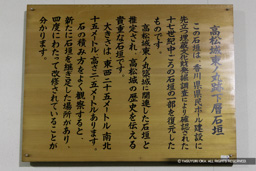 高松城東ノ丸跡下層石垣
この石垣は、香川県県民ホール建設に
先立つ埋蔵文化財発掘調査により確認された
十七世紀中ごろの石垣の一部を復元した
ものです。
高松城東ノ丸築城に関連した石垣と
推定され、高松城の歴史を伝える
貴重な石垣です。
大きさは、東西二十五メートル、南北
十五メートル、高さ二・五メートルあります。
石の積み方をよく観察すると、
新たに石垣を継ぎ足した場所があり、
四度にわたって改修されていることが
分かります。